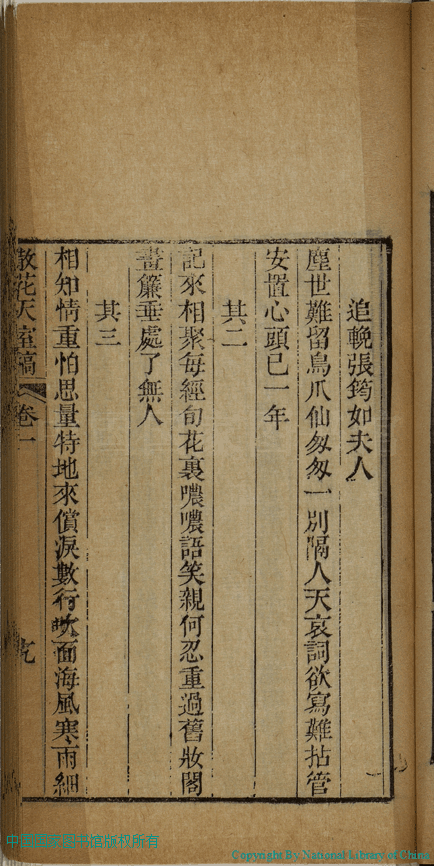 追輓張筠如夫人
塵世難留鳥爪仙匆匆一別隔人天哀詞欲寫難拈管
安置心頭已一年
其二
記來相聚每經旬花裏噥噥語笑親何忍重過舊妝閣
畫簾垂處了無人
其三
相知情重怕思量特地來償淚數行吹面海風寒雨細
散花天室稿 卷一
Copyright By National Library of China